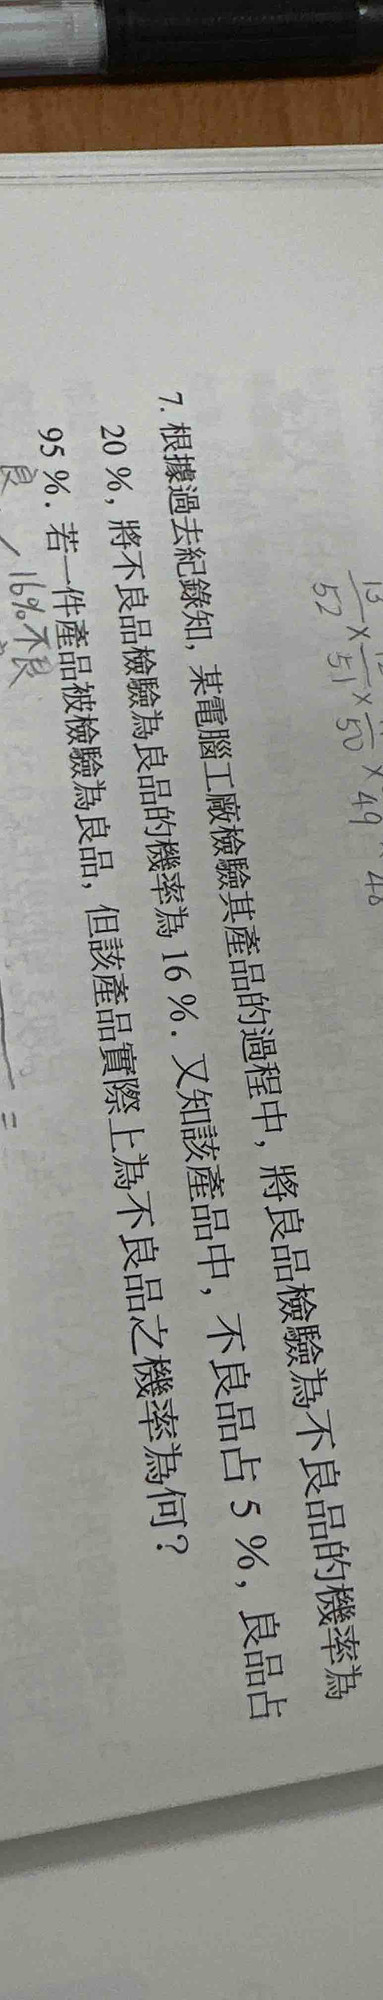 13 12
52 × 51 × 50 × 49 × 48
7. 根據過去紀錄知, 某電腦工廠檢驗其產品的過程中, 將良品檢驗為不良品的機率為
20 %, 將不良品檢驗為良品的機率為 16 %. 又知該產品中, 不良品占 5 %, 良品占
95 %. 若一件產品被檢驗為良品, 但該產品實際上為不良品之機率為何?
良 16% 不良 =